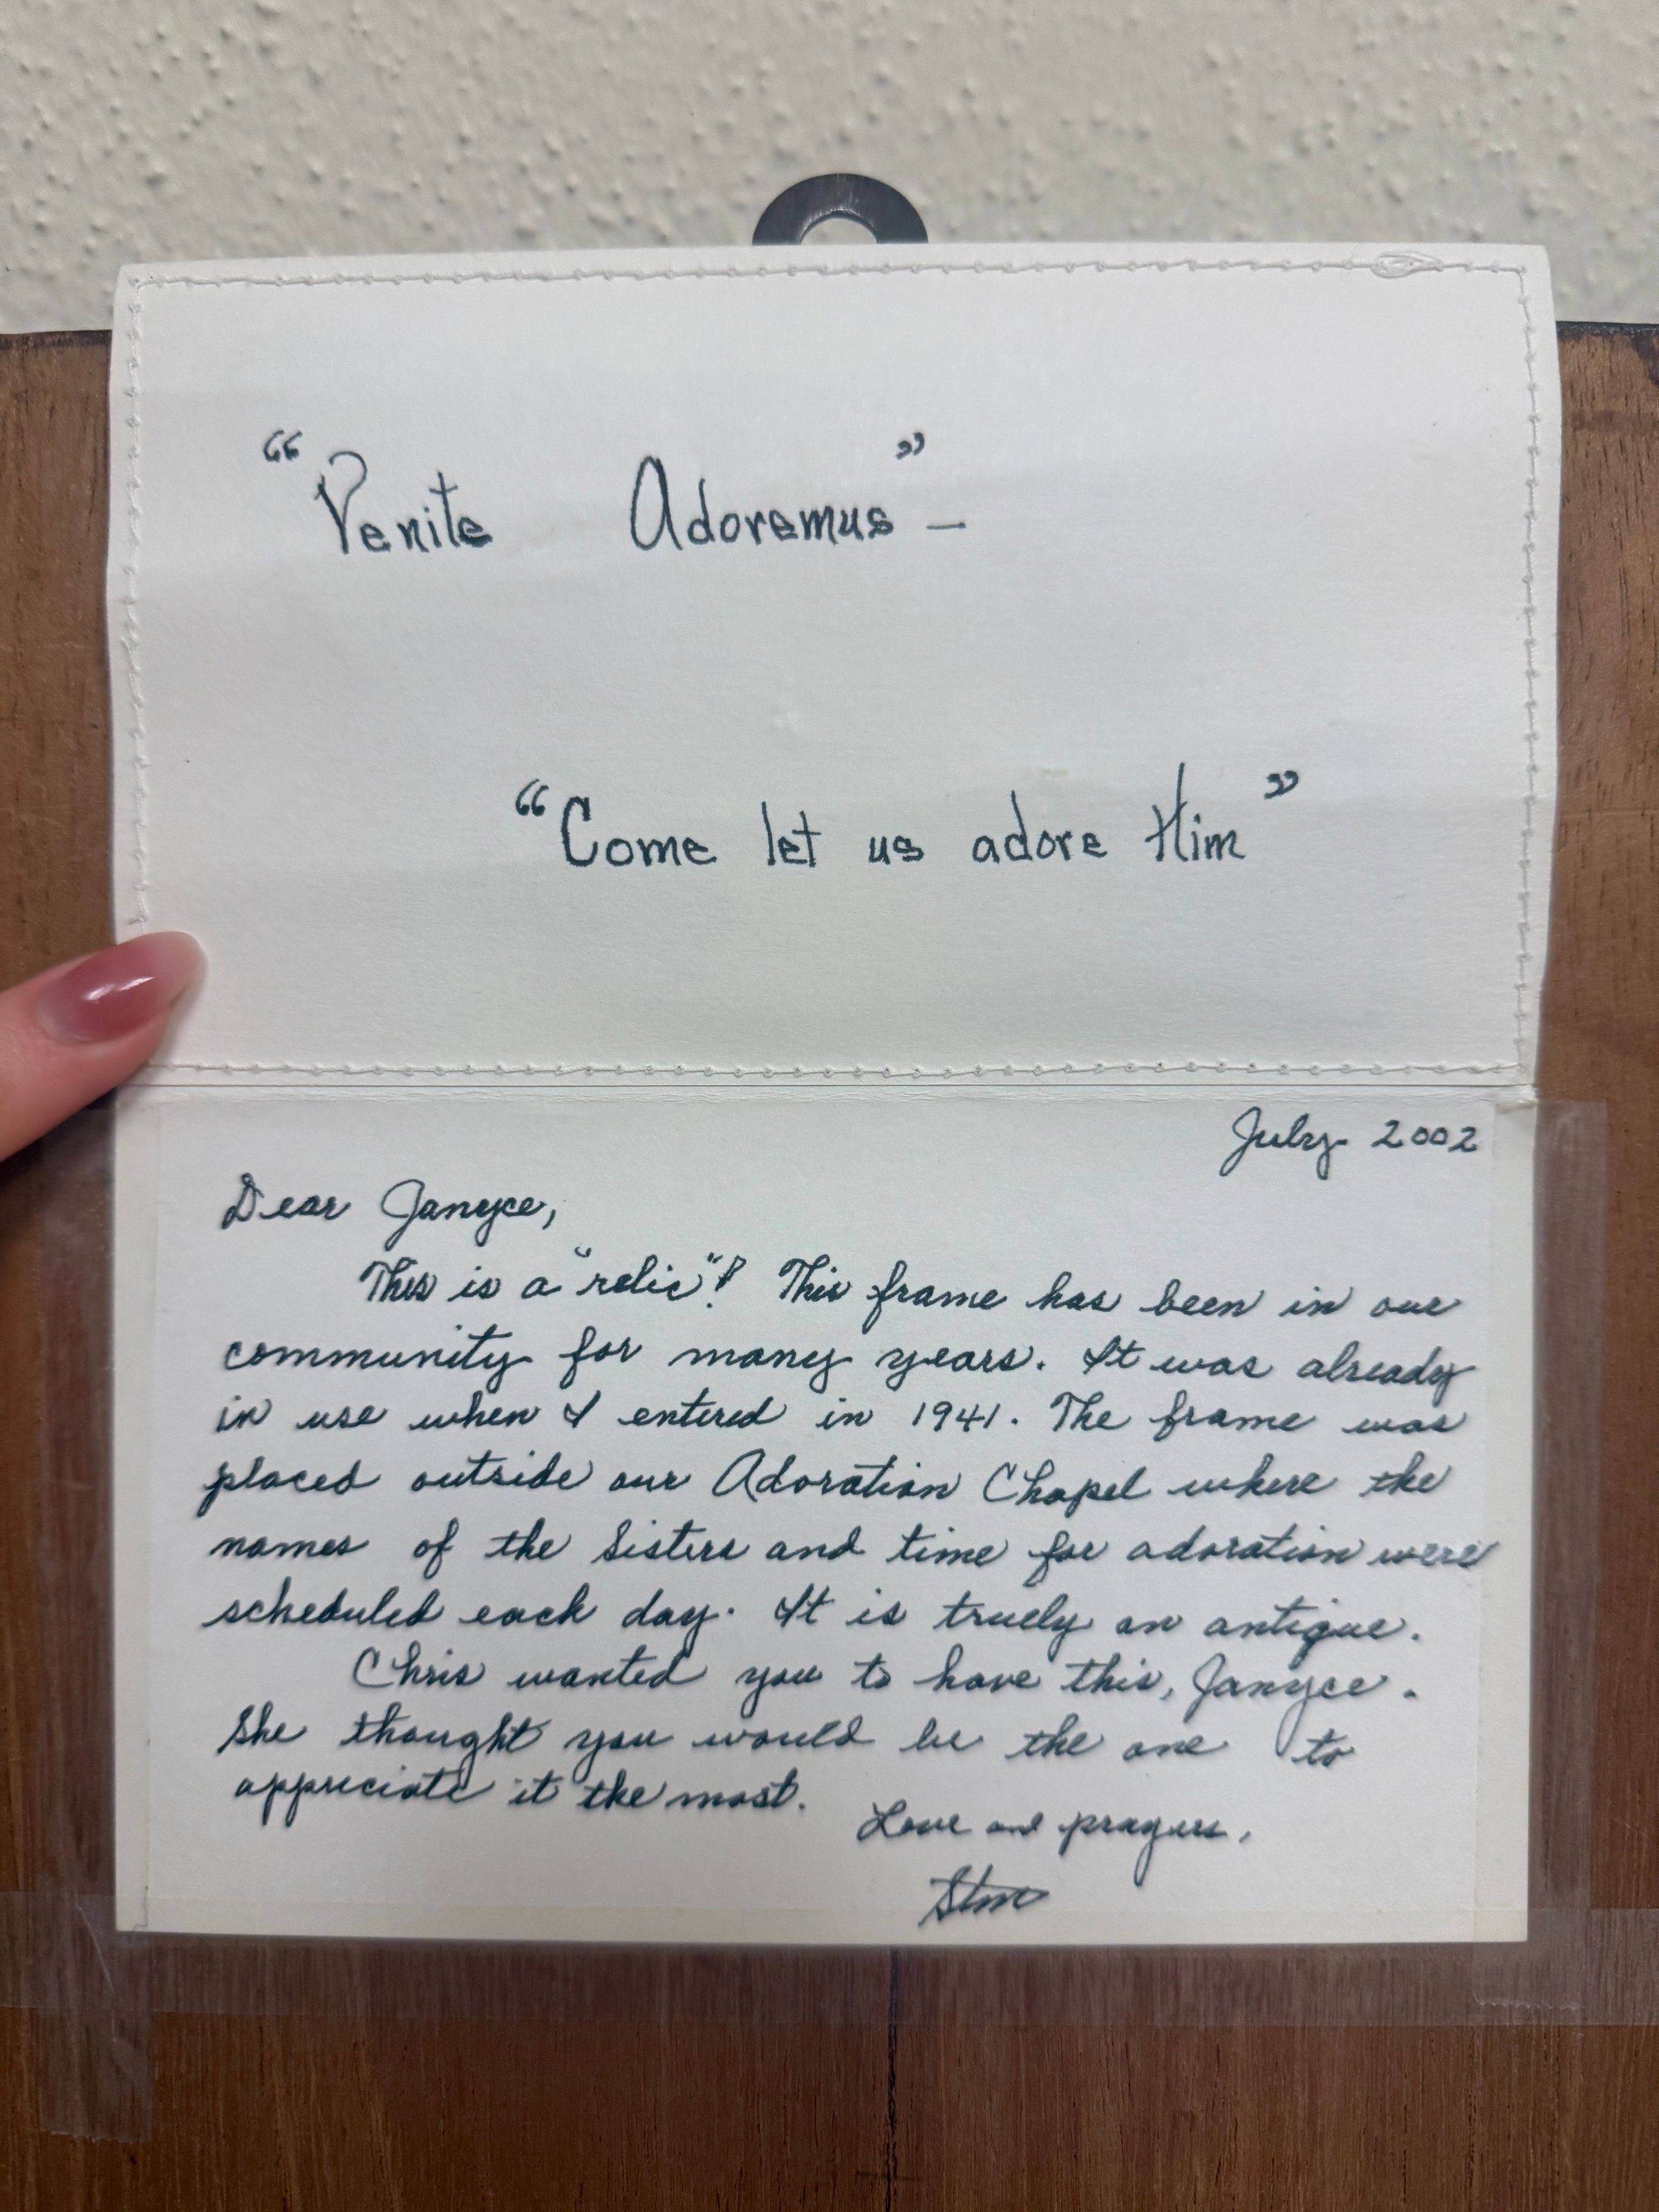 "Venite Adoremus" —
"Come let us adore Him"
July 2002
Dear Janyce,
This is a "relic"! This frame has been in our
community for many years. It was already
in use when I entered in 1941. The frame was
placed outside our Adoration Chapel where the
names of the Sisters and time for adoration were
scheduled each day. It is truely an antique.
Chris wanted you to have this, Janyce.
She thought you would be the one to
appreciate it the most.
Love and prayers,